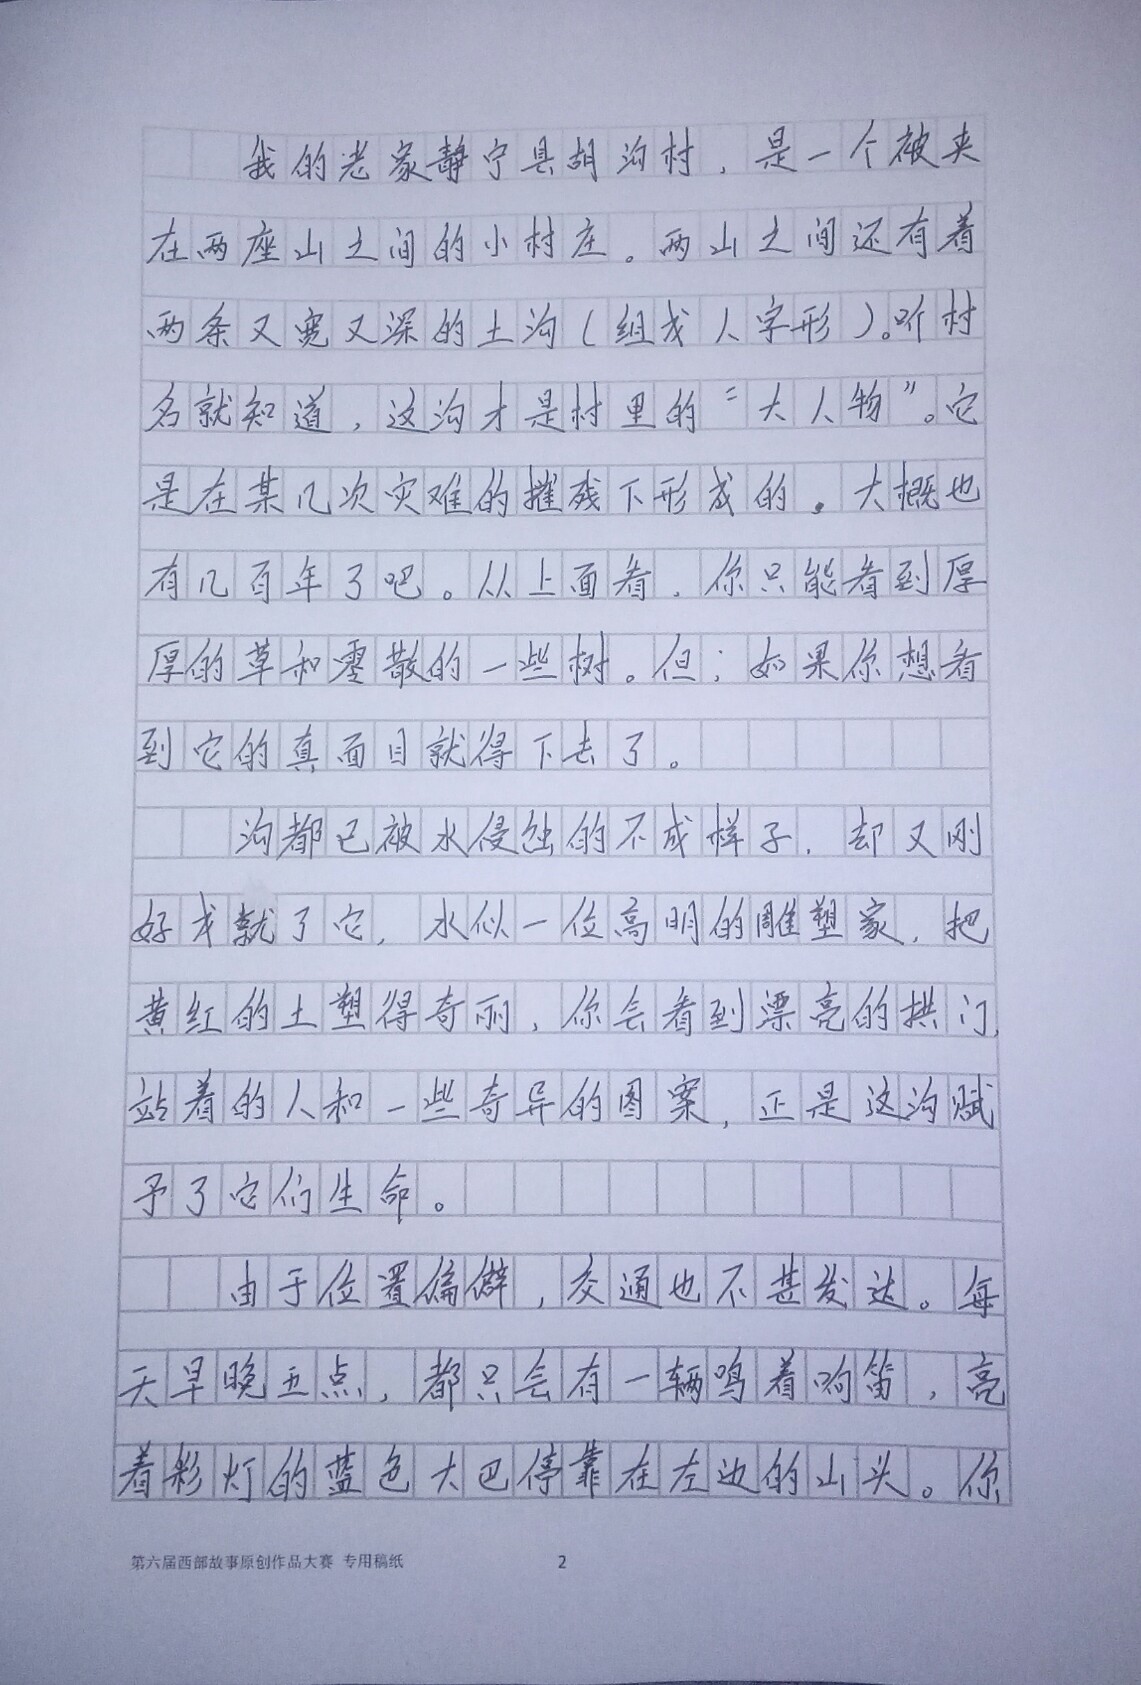 我的老家静宁县胡沟村，是一个被夹
在两座山之间的小村庄。两山之间还有着
两条又宽又深的土沟（组成人字形）。听村
名就知道，这沟才是村里的“大人物”。它
是在某几次灾难的摧残下形成的。大概也
有几百年了吧。从上面看，你只能看到厚
厚的草和零散的一些树。但；如果你想看
到它的真面目就得下去了。
沟都已被水侵蚀的不成样子，却又刚
好成就了它，水似一位高明的雕塑家，把
黄红的土塑得奇丽，你会看到漂亮的拱门，
站着的人和一些奇异的图案，正是这沟赋
予了它们生命。
由于位置偏僻，交通也不甚发达。每
天早晚五点，都只会有一辆鸣着响笛，亮
着彩灯的蓝色大巴停靠在左边的山头。你
第六届西部故事原创作品大赛 专用稿纸 2